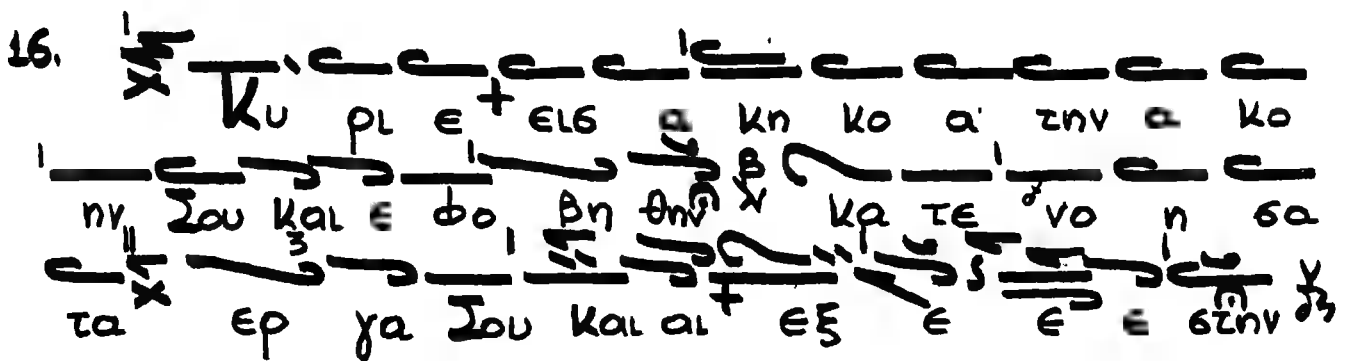 16. Κυ ρι ε εις α κη κο α την α κο
ην Σου και ε φο βη θην κα τε νο η σα
τα ερ γα Σου και αι εξ ε ε ε στην